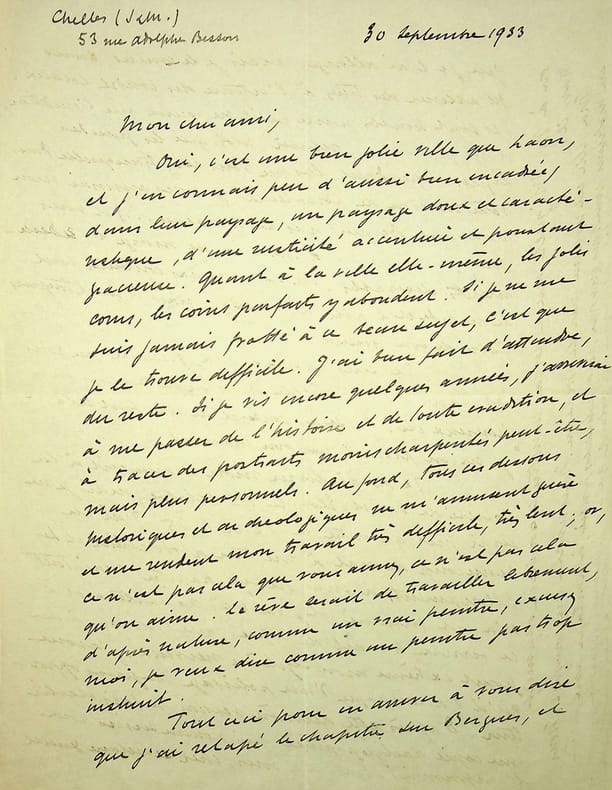 Chelles (S&M.)
53 rue Adolphe Besson
30 septembre 1933
Mon cher ami,
Oui, c'est une bien jolie ville que Laon,
et j'en connais peu d'aussi bien encadrées
dans leur paysage, un paysage doux et caracté-
ristique, d'une rusticité accentuée et pourtant
gracieuse. Quant à la ville elle-même, les jolis
coins, les coins parfaits y abondent. Si je ne me
suis jamais frotté à ce beau sujet, c'est que
je le trouve difficile. J'ai bien fait d'attendre,
du reste. Si je vis encore quelques années, j'arriverai
à me passer de l'histoire et de toute érudition, et
à tracer des portraits moins charpentés peut-être,
mais plus personnels. Au fond, tous ces dessous
historiques et archéologiques ne m'amusent guère
et me rendent mon travail très difficile, très lent ; or,
ce n'est pas cela que vous aimez, ce n'est pas cela
qu'on aime. Le rêve serait de travailler librement,
d'après nature, comme un vrai peintre, excusez
moi, je veux dire comme un peintre pas trop
instruit.
Tout ceci pour en arriver à vous dire
que j'ai retapé le chapitre sur Bergues, et